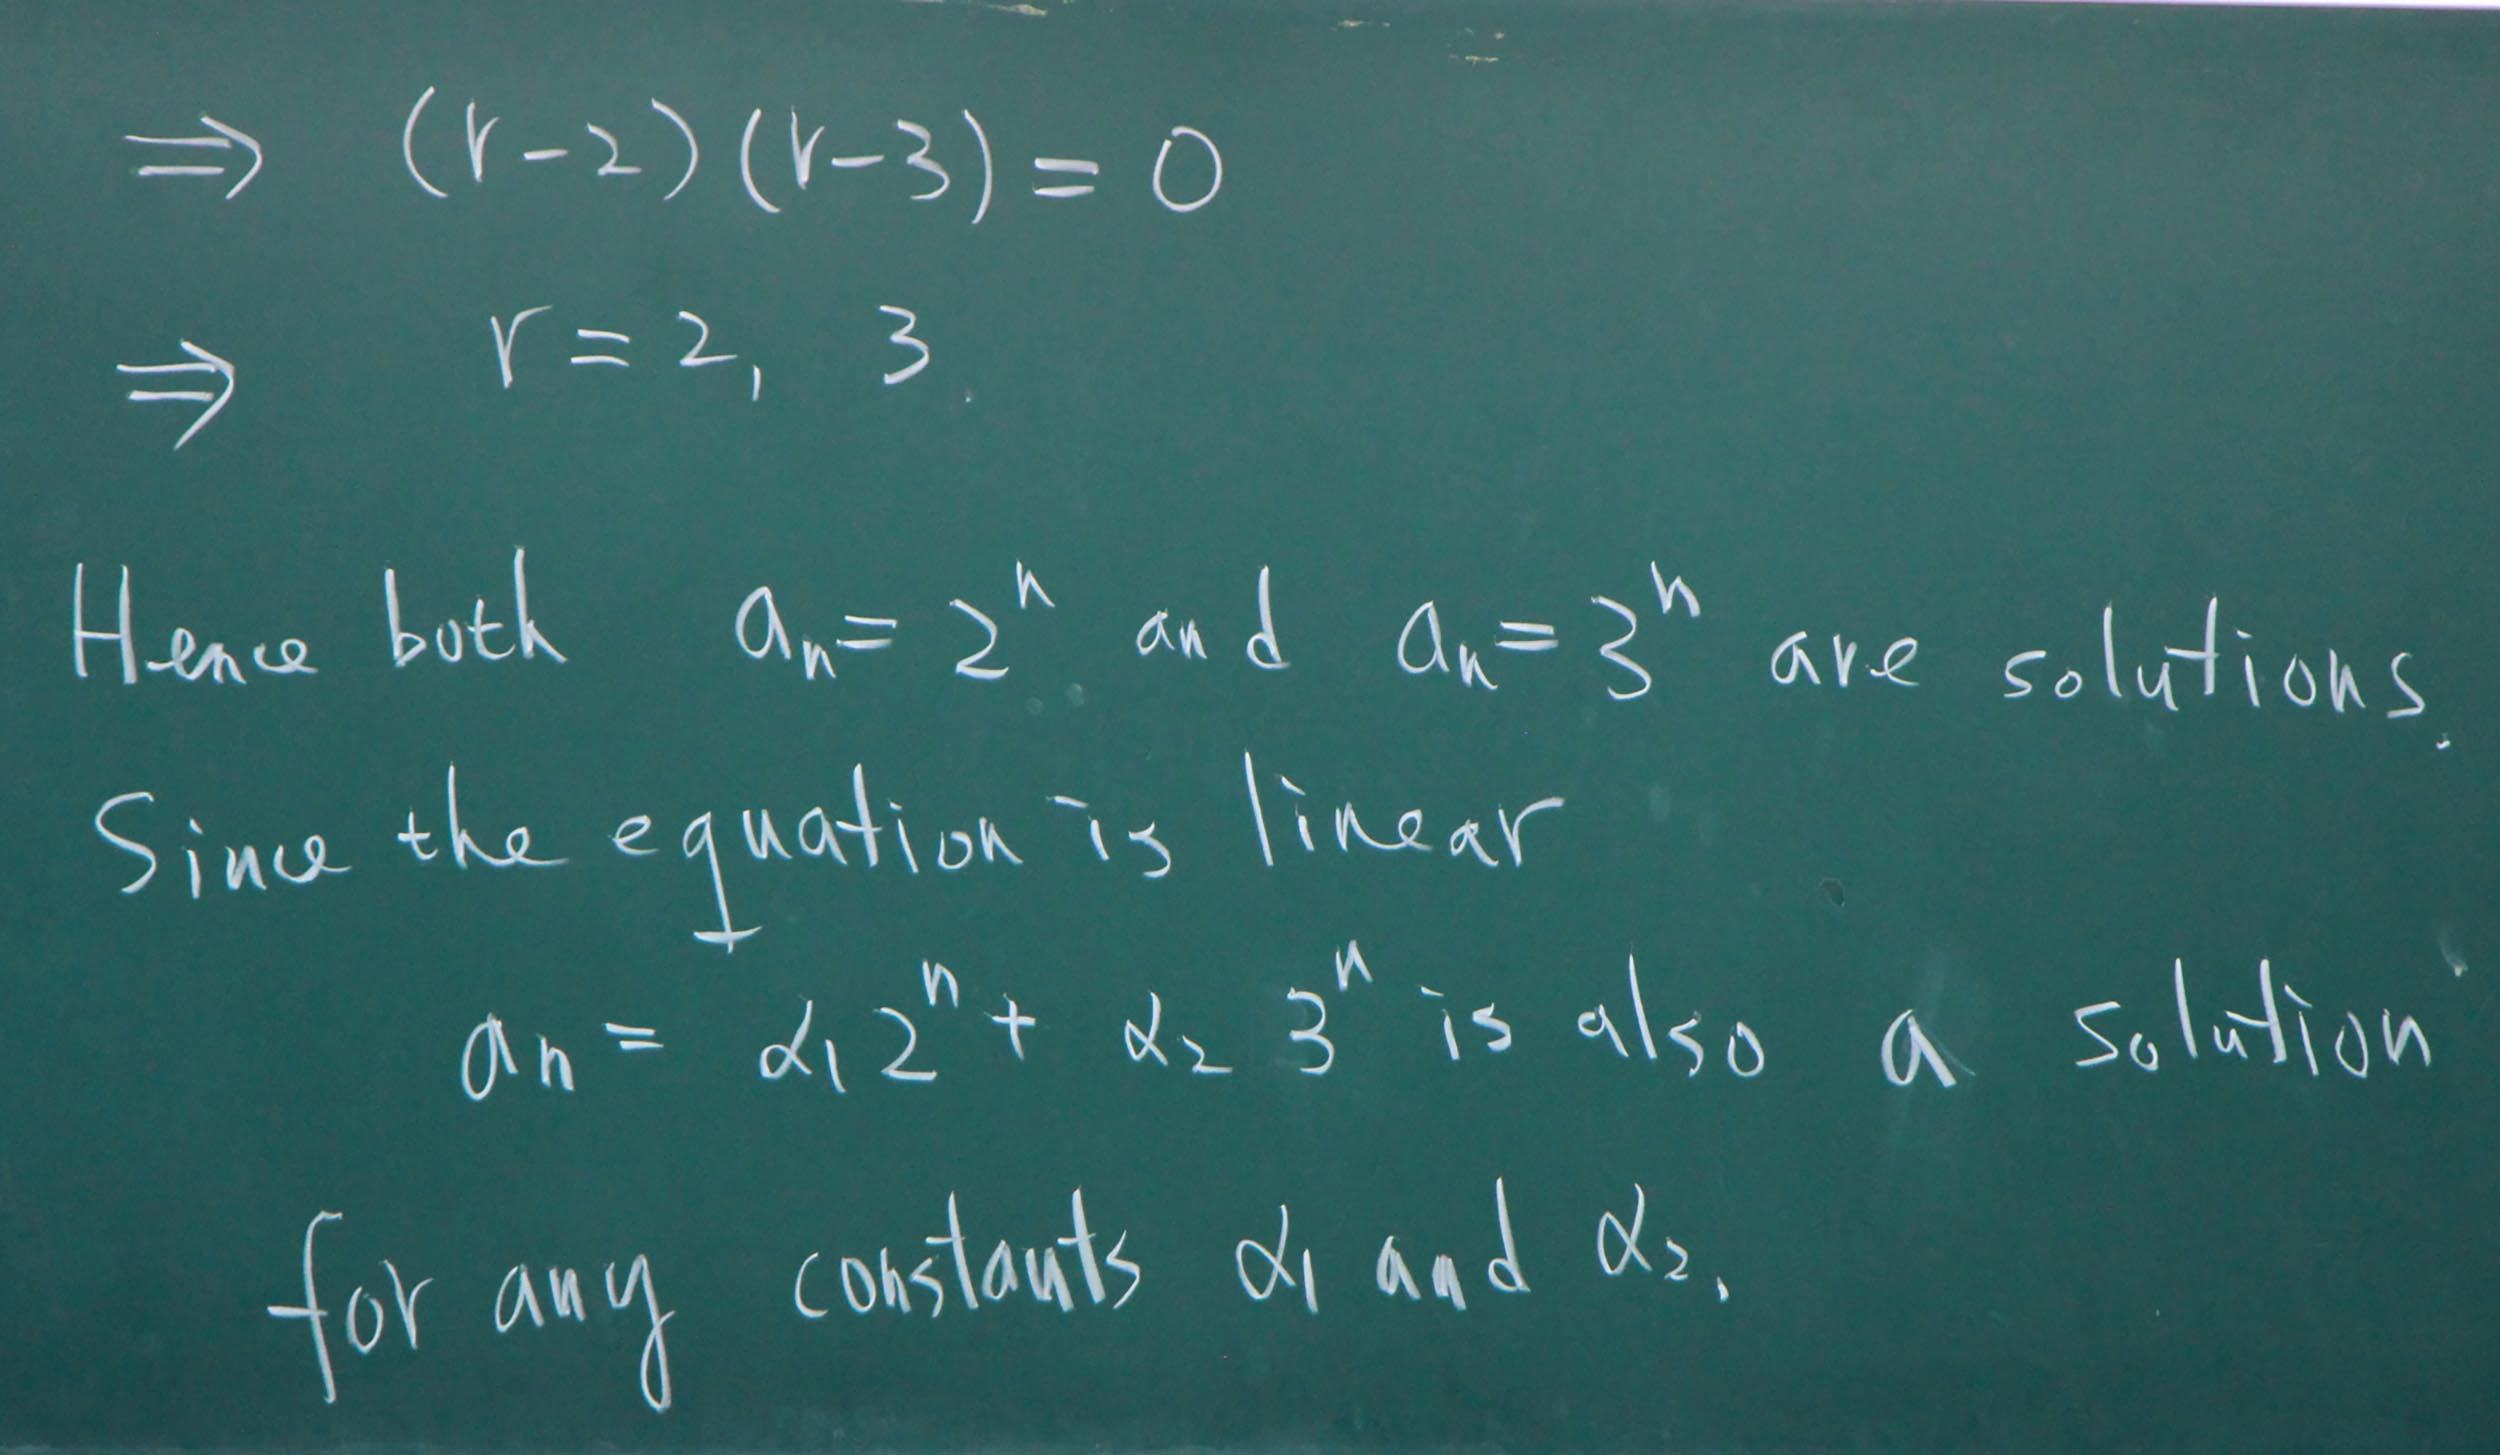 ⇒ (r-2)(r-3)=0
⇒ r=2, 3.
Hence both aₙ=2ⁿ and aₙ=3ⁿ are solutions.
Since the equation is linear
aₙ = α₁2ⁿ + α₂ 3ⁿ is also a solution
for any constants α₁ and α₂.